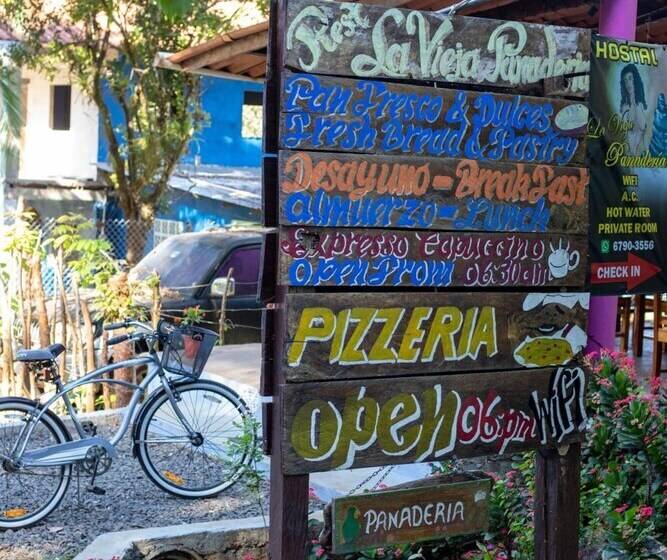 Rest La Vieja Panaderia
Pan Fresco & Dulces
Fresh Bread & Pastry
Desayuno - BreakFast
almuerzo - Lunch
Expresso Capuccino
Open From 06:30am
PIZZERIA
Open 06:pm WiFi
PANADERIA
HOSTAL
La Vieja
Panaderia
WIFI
A.C.
HOT WATER
PRIVATE ROOM
6790-3556
CHECK IN